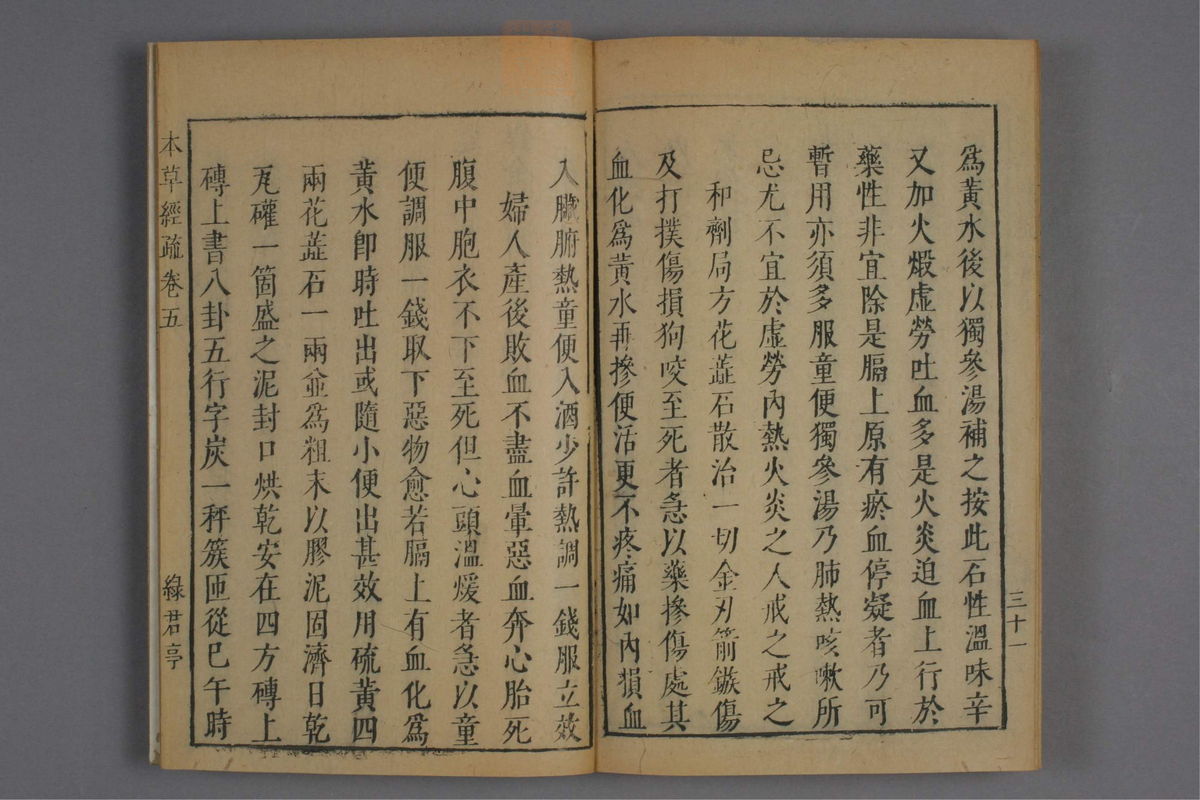 爲黃水後以獨參湯補之按此石性溫味辛
又加火煅虛勞吐血多是火炎迫血上行於
藥性非宜除是膈上原有瘀血停凝者乃可
暫用亦須多服童便獨參湯乃肺熱咳嗽所
忌尤不宜於虛勞內熱火炎之人戒之戒之
和劑局方花蕋石散治一切金刃箭鏃傷
及打撲傷損狗咬至死者急以藥摻傷處其
血化爲黃水再摻便活更不疼痛如內損血
三十一
入臟腑熱童便入酒少許熱調一錢服立效
婦人產後敗血不盡血暈惡血奔心胎死
腹中胞衣不下至死但心頭溫煖者急以童
便調服一錢取下惡物愈若膈上有血化爲
黃水卽時吐出或隨小便出甚效用硫黃四
兩花蕋石一兩並爲粗末以膠泥固濟日乾
瓦礶一箇盛之泥封口烘乾安在四方磚上
磚上書八卦五行字炭一秤簇匝從巳午時
本草經疏卷五
綠君亭